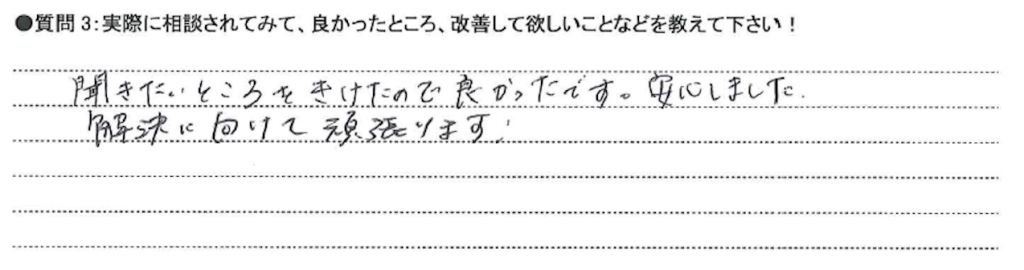 ●質問3：実際に相談されてみて、良かったところ、改善して欲しいことなどを教えて下さい！
聞きたいところをきけたので良かったです。安心しました.
解決に向けて頑張ります!